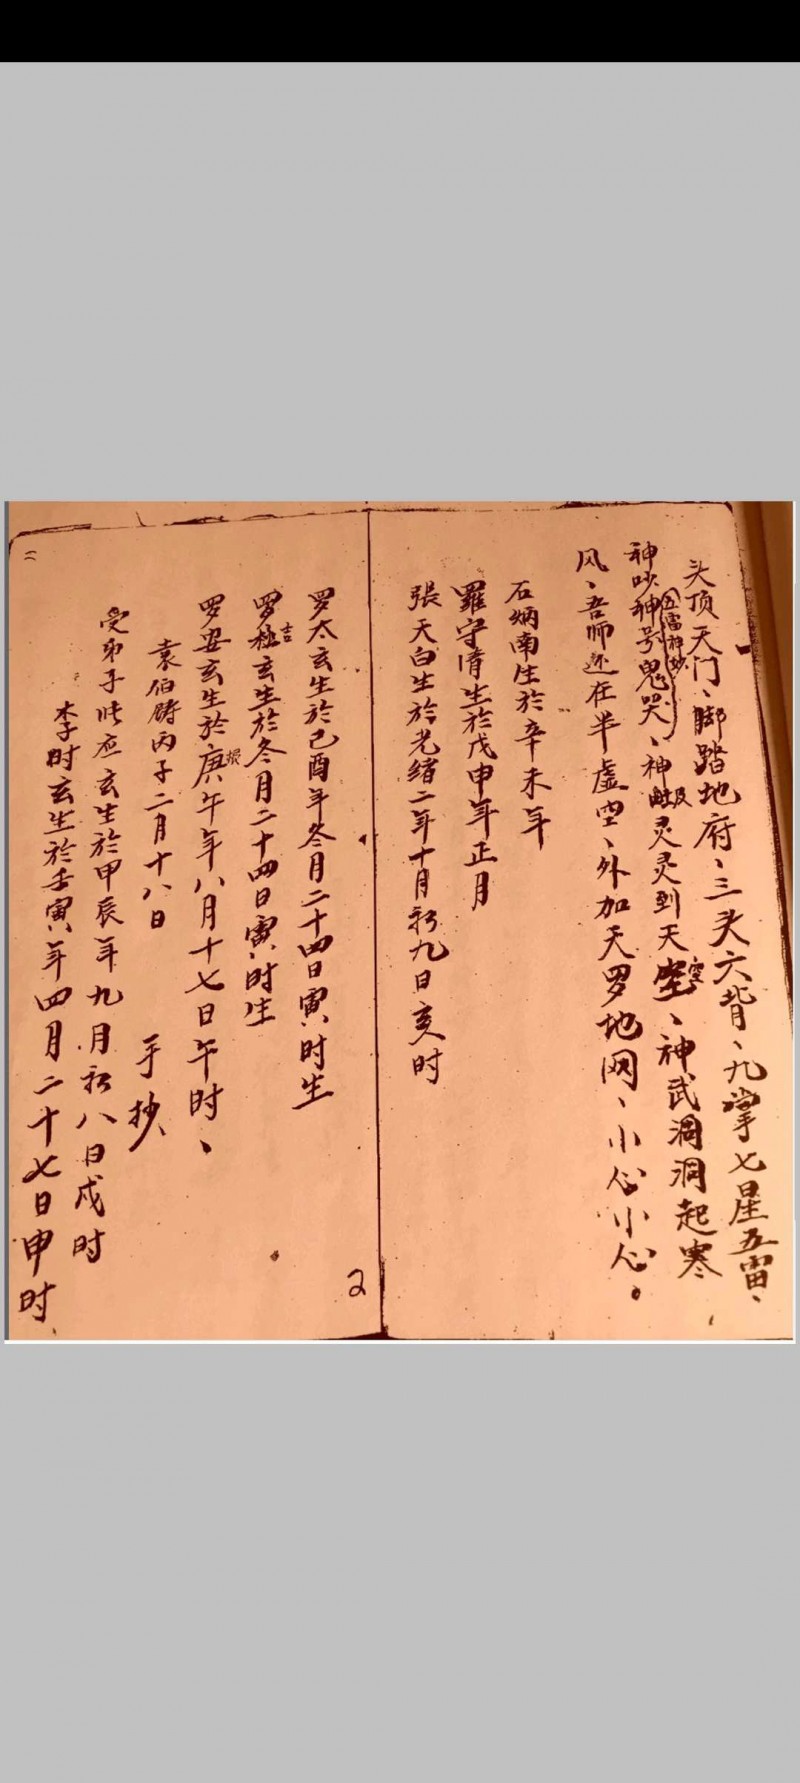 头顶天门、脚踏地府、三头六背、九掌七星五雷、
神吵神号鬼哭、神 灵灵到天空、神武洞洞起寒
五雷神吵
风、吾师还在半虚空、外加天罗地网、小心小心。
石炳南生於辛未年
羅守清生於戊申年正月
張天白生於光绪二年十月初九日亥时
罗太玄生於己酉年冬月二十四日寅时生
罗极玄生於冬月二十四日寅时生
吉
罗安玄生於庚午年八月十七日午时、
振
袁伯 丙子二月十八日 手抄
受弟子 应玄生於甲辰年九月初八日戌时
李时玄生於壬寅年四月二十七日申时
2